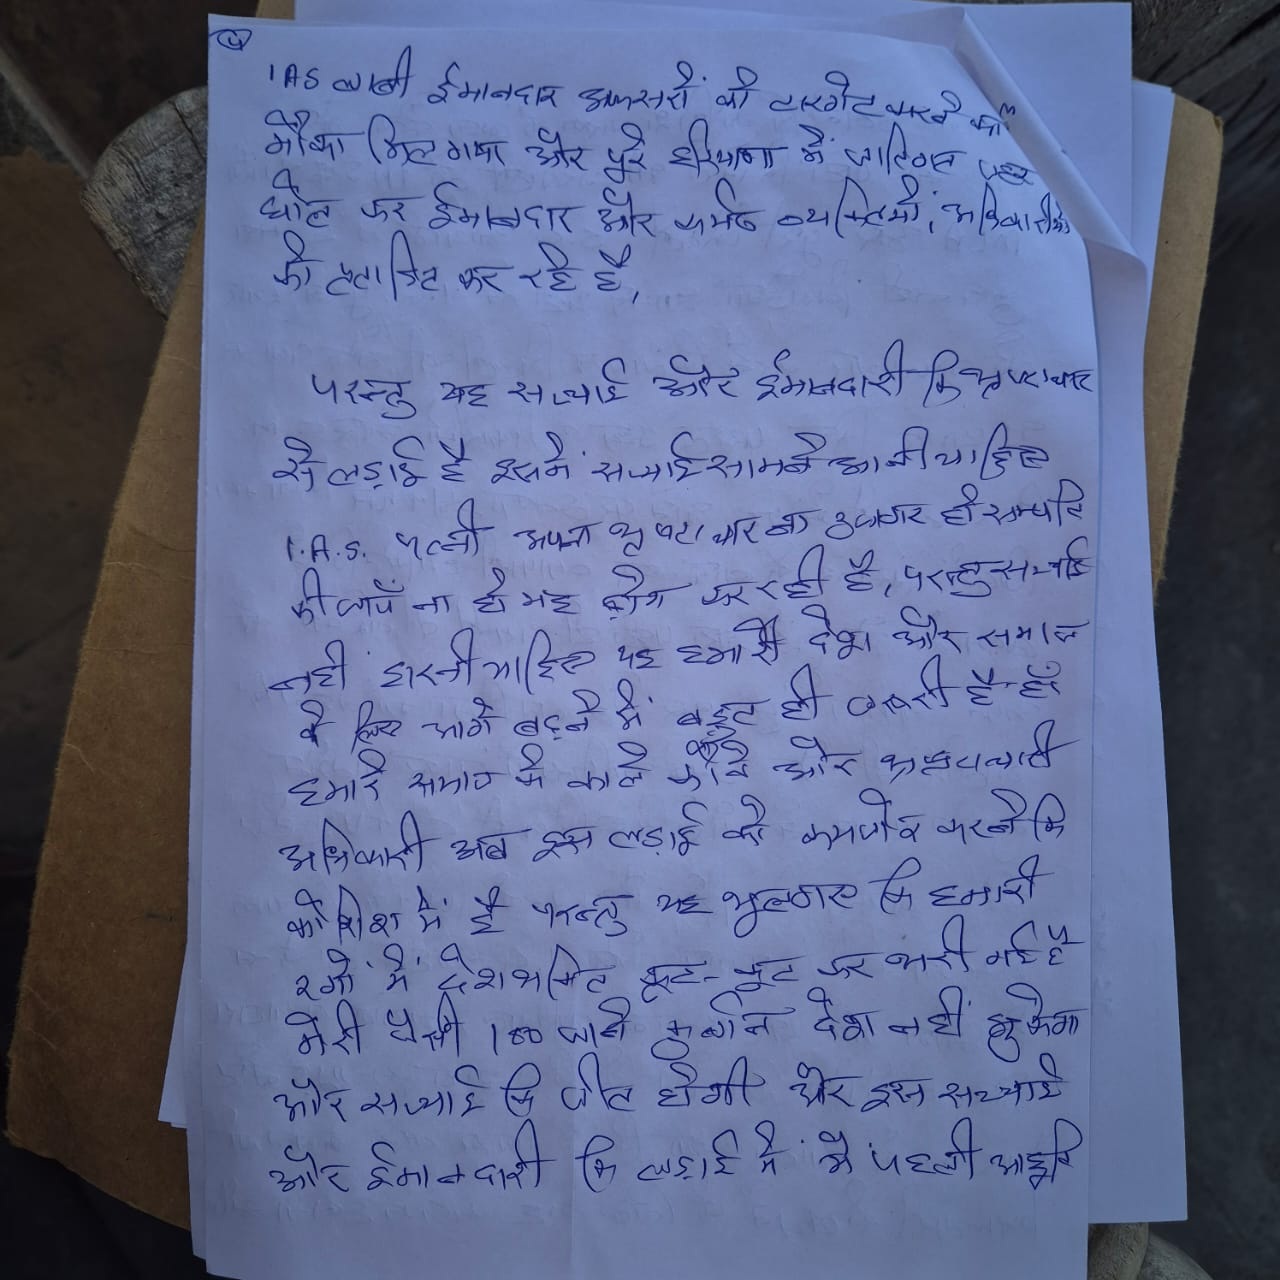 IAS लाबी ईमानदार अफसरों को टारगेट करने का
मौका मिल गया और पूरे हरियाणा में जातिगत जहर
घोल कर ईमानदार और कर्मठ व्यक्तियों, अधिकारीयो
को प्रताडित कर रहे है,
परन्तु यह सच्चाई और ईमानदारी कि भ्रष्टाचार
से लड़ाई है इसमें सच्चाई सामने आनी चाहिए
I.A.S. पत्नी अपना भ्रष्टाचार ना उजागर हो सम्पति
की जाचँ ना हो यह ढ़ोग कर रही है, परन्तु सच्चाई
नही हारनी चाहिए यह हमारे देश और समाज
के लिए आगे बढ़ने में बहुत ही जरूरी है
हमारे समाज के काले कौवे और भ्रष्टाचारी
अधिकारी अब इस लड़ाई को कमजोर करने कि
कोशिश में है परन्तु यह भुलगए कि हमारी
रगों में देशभक्ति कूट-कूट कर भरी गई है
मेरी जैसी 100 जाने कुर्बान देश नहीं झुकेगा
और सच्चाई कि जीत होगी और इस सच्चाई
और ईमानदारी कि लड़ाई में मैं पहली आहुति